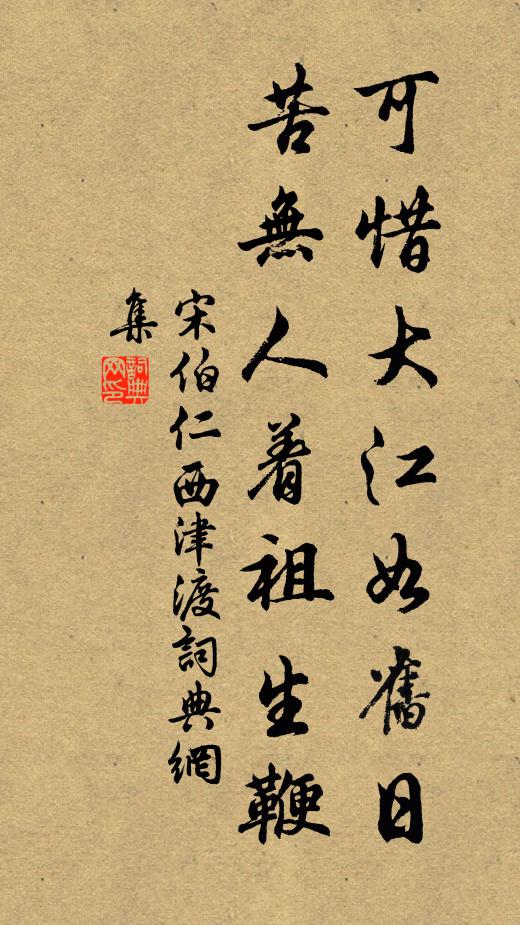 可惜大江如舊日
苦無人着祖生鞭
宋伯仁西津渡詞典網
集
詞典網印